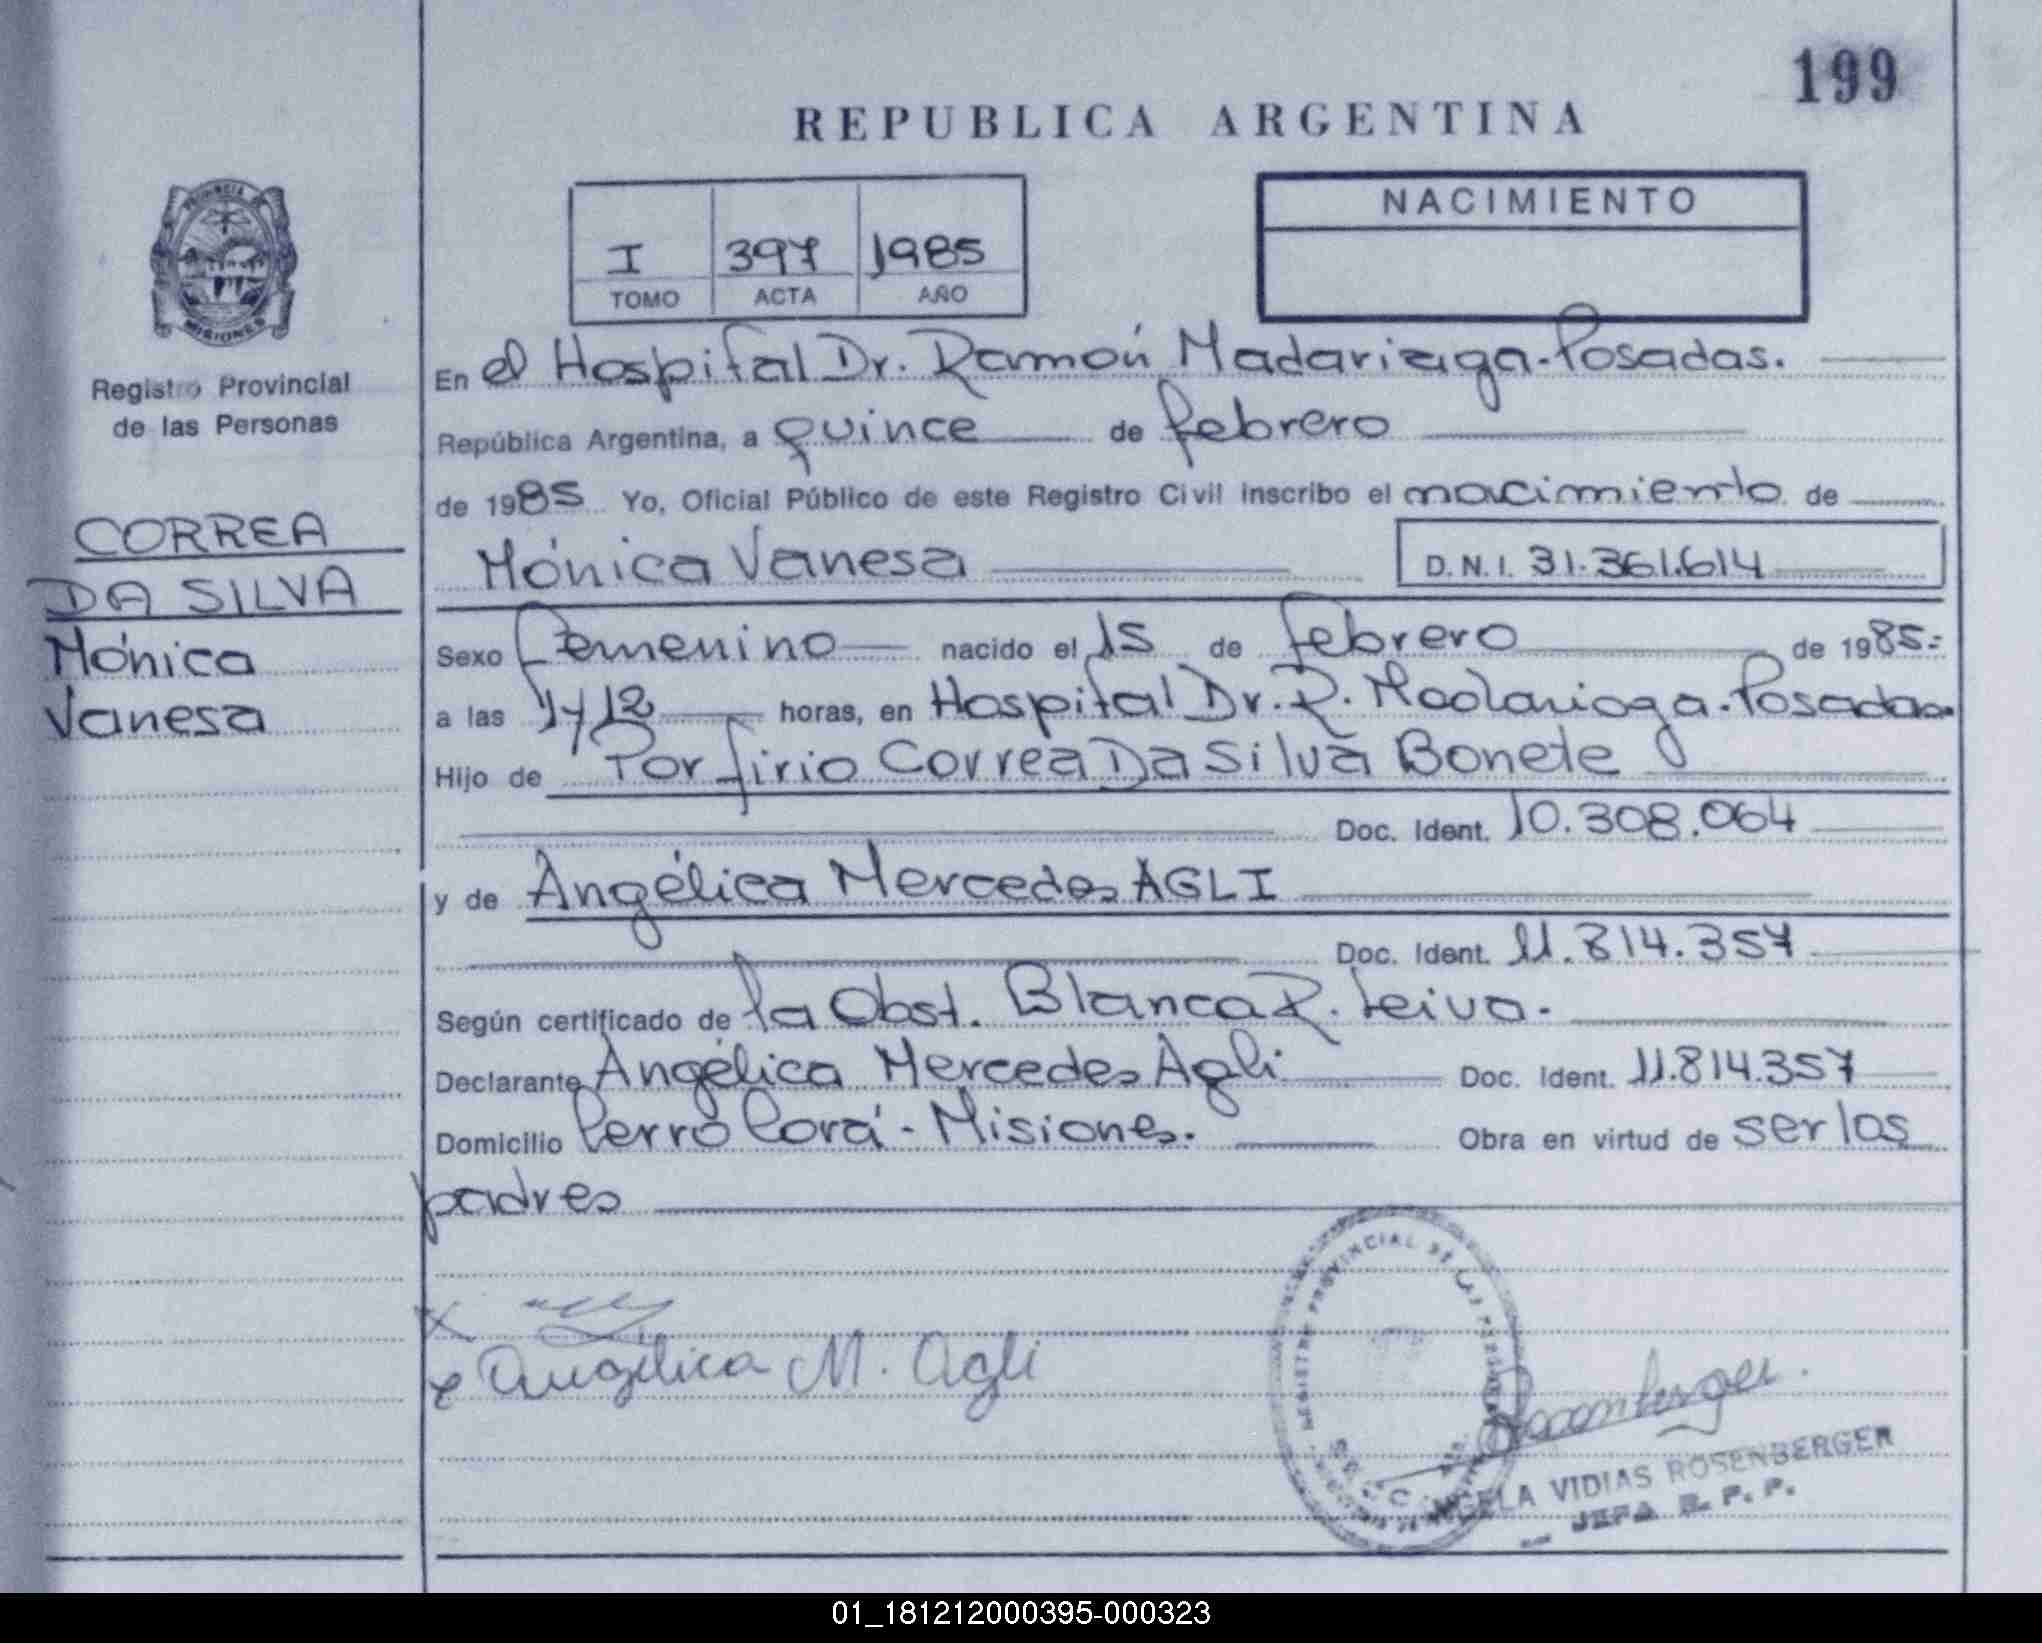 199
REPUBLICA ARGENTINA
PROVINCIA
MISIONES
Registro Provincial
de las Personas
I 397 1985
TOMO ACTA AÑO
NACIMIENTO
CORREA
DA SILVA
Mónica
Vanesa
En el Hospital Dr. Ramón Madariaga-Posadas.
República Argentina, a quince de febrero
de 1985 Yo, Oficial Público de este Registro Civil inscribo el nacimiento de
Mónica Vanesa D.N.I. 31.361.614
Sexo Femenino nacido el 15 de febrero de 1985=
a las 1y12 horas, en Hospital Dr. R. Madariaga-Posadas
Hijo de Porfirio Correa Da Silva Bonete
Doc. Ident. 10.308.064
y de Angélica Mercedes AGLI
Doc. Ident. 11.814.357
Según certificado de la Obst. Blanca R. Leiva.
Declarante Angélica Mercedes Agli Doc. Ident. 11.814.357
Domicilio Cerro Corá - Misiones. Obra en virtud de ser los
padres
Angélica M. Agli
REGISTRO PROVINCIAL DE LAS PERSONAS
ANGELA VIDIAS ROSENBERGER
JEFA R. P. P.
01_181212000395-000323